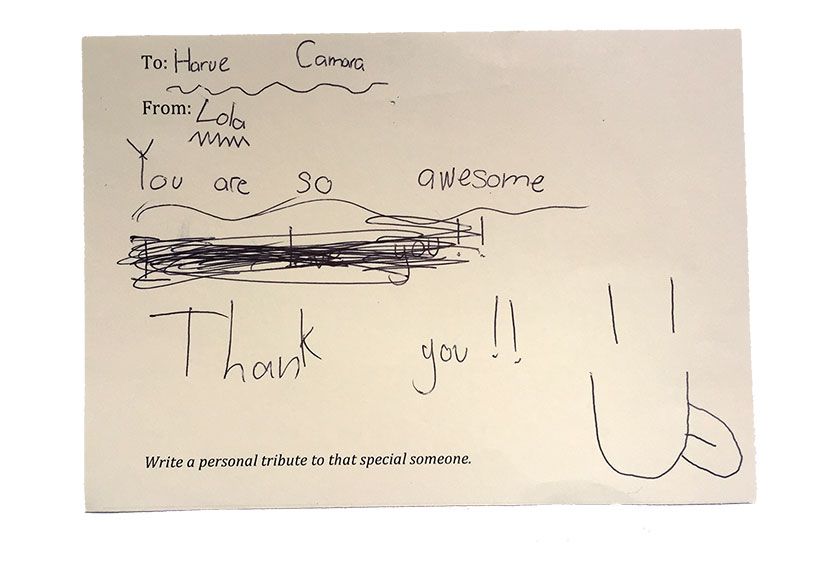 To: Harve Camara
From: Lola
You are so awesome
I love you!!
Thank you!!
Write a personal tribute to that special someone.